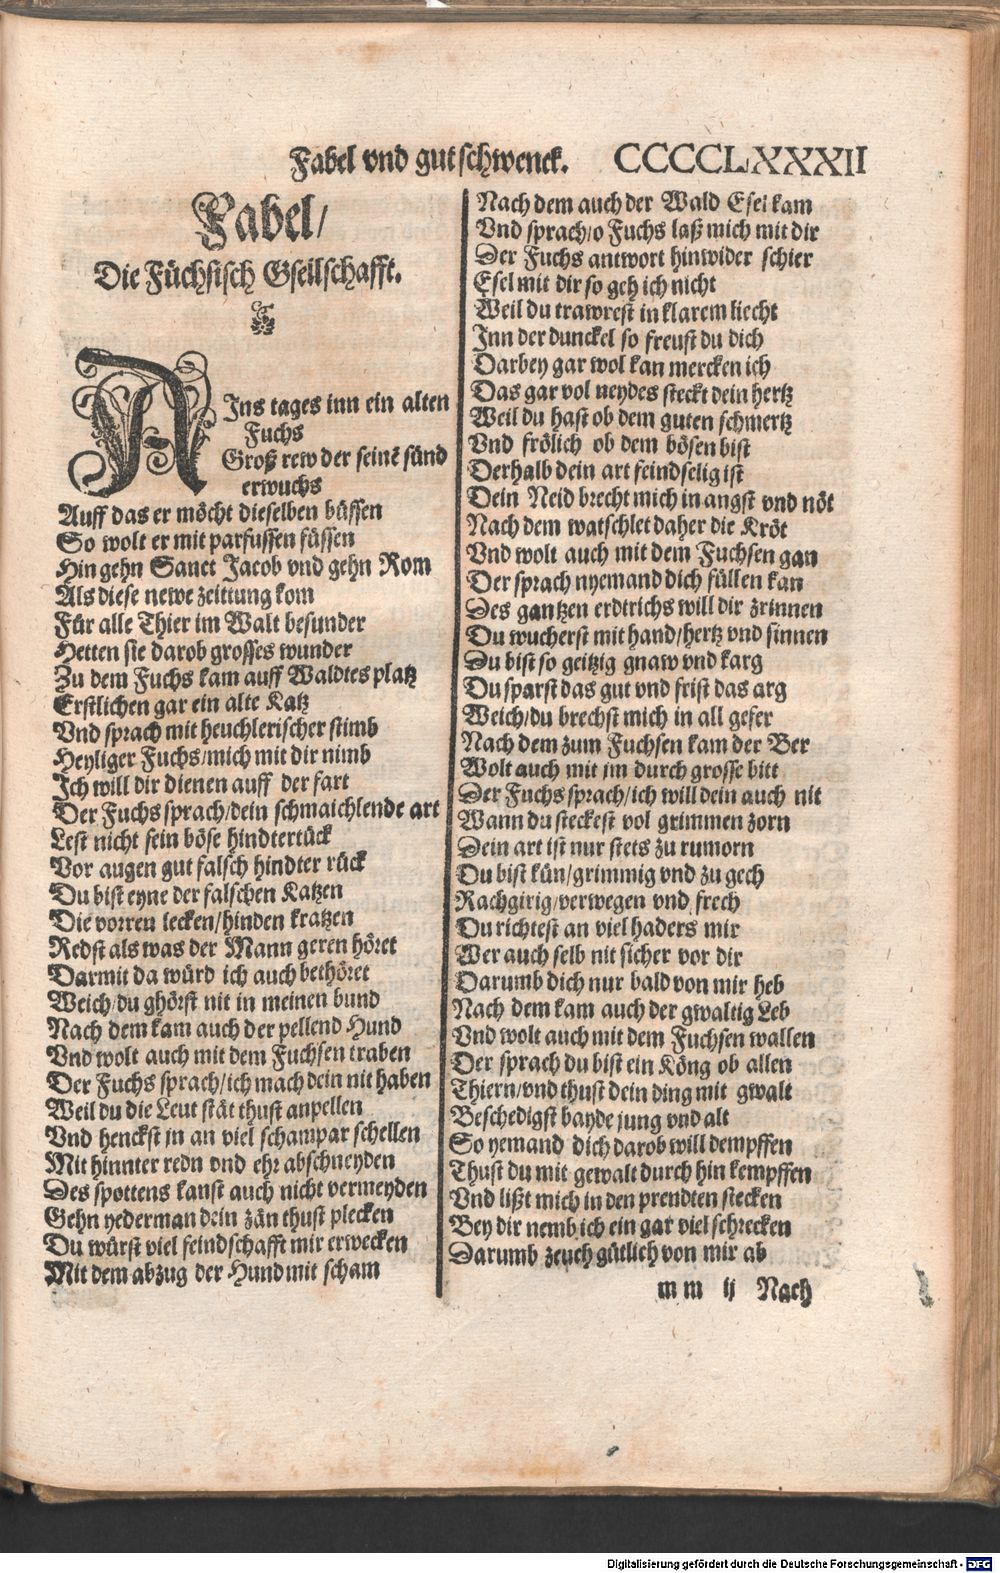 Fabel vnd gut schwenck. CCCCCLXXXII
Fabel/
Die Füchsisch Gsellschafft.
AIns tages inn ein alten
Fuchs
Groß rew der seinẽ sünd
erwuchs
Auff das er möcht dieselben büssen
So wolt er mit parfussen füssen
Hin gehn Sanct Jacob vnd gehn Rom
Als diese newe zeittung kom
Für alle Thier im Walt besunder
Hetten sie darob grosses wunder
Zu dem Fuchs kam auff Waldtes platz
Erstlichen gar ein alte Katz
Vnd sprach mit heuchlerischer stimb
Heyliger Fuchs/mich mit dir nimb
Ich will dir dienen auff der fart
Der Fuchs sprach/dein schmaichlende art
Lest nicht sein böse hindtertück
Vor augen gut falsch hindter rück
Du bist eyne der falschen Katzen
Die vorren lecken/hinden kratzen
Redst als was der Mann geren höret
Darmit da würd ich auch bethöret
Weich/du ghörst nit in meinen bund
Nach dem kam auch der pellend Hund
Vnd wolt auch mit dem Fuchsen traben
Der Fuchs sprach/ich mach dein nit haben
Weil du die Leut stät thust anpellen
Vnd henckst jn an viel schampar schellen
Mit hinnter redn vnd ehr abschneyden
Des spottens kanst auch nicht vermeyden
Gehn yederman dein zän thust plecken
Du würst viel feindschafft mir erwecken
Mit dem abzug der Hund mit scham
Nach dem auch der Wald Esel kam
Vnd sprach/o Fuchs laß mich mit dir
Der Fuchs antwort hinwider schier
Esel mit dir so geh ich nicht
Weil du trawrest in klarem liecht
Inn der dunckel so freust du dich
Darbey gar wol kan mercken ich
Das gar vol neydes steckt dein hertz
Weil du hast ob dem guten schmertz
Vnd frölich ob dem bösen bist
Derhalb dein art feindselig ist
Dein Neid brecht mich in angst vnd nöt
Nach dem watschlet daher die Kröt
Vnd wolt auch mit dem Fuchsen gan
Der sprach nyemand dich füllen kan
Des gantzen erdtrichs will dir zrinnen
Du wucherst mit hand/hertz vnd sinnen
Du bist so geitzig gnaw vnd karg
Du sparst das gut vnd frist das arg
Weich/du brechst mich in all gefer
Nach dem zum Fuchsen kam der Ber
Wolt auch mit jm durch grosse bitt
Der Fuchs sprach/ich will dein auch nit
Wann du steckest vol grimmen zorn
Dein art ist nur stets zu rumorn
Du bist kün/grimmig vnd zu gech
Rachgirig/verwegen vnd frech
Du richtest an viel haders mir
Wer auch selb nit sicher vor dir
Darumb dich nur bald von mir heb
Nach dem kam auch der gwaltig Leb
Vnd wolt auch mit dem Fuchsen wallen
Der sprach du bist ein Köng ob allen
Thiern/vnd thust dein ding mit gwalt
Beschedigst bayde jung vnd alt
So yemand dich darob will dempffen
Thust du mit gewalt durch hin kempffen
Vnd lißt mich in den prendten stecken
Bey dir nemb ich ein gar viel schrecken
Darumb zeuch gütlich von mir ab
mm ij Nach
Digitalisierung gefördert durch die Deutsche Forschungsgemeinschaft - DFG